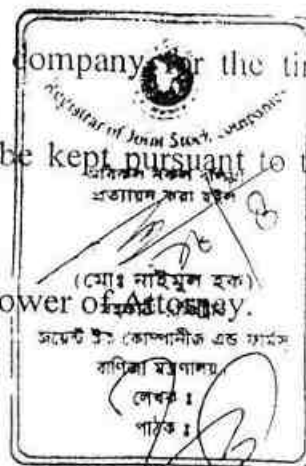 company for the tim
Registrar of Joint Stock Companies
be kept pursuant to t
অবিকল নকল
প্রত্যায়ন করা হইল
(মোঃ নাইমুল হক)
ower of Attorney.
জয়েন্ট ষ্টক কোম্পানীজ এন্ড ফার্মস
বাণিজ্য মন্ত্রণালয়
লেখক ঃ
পাঠক ঃ